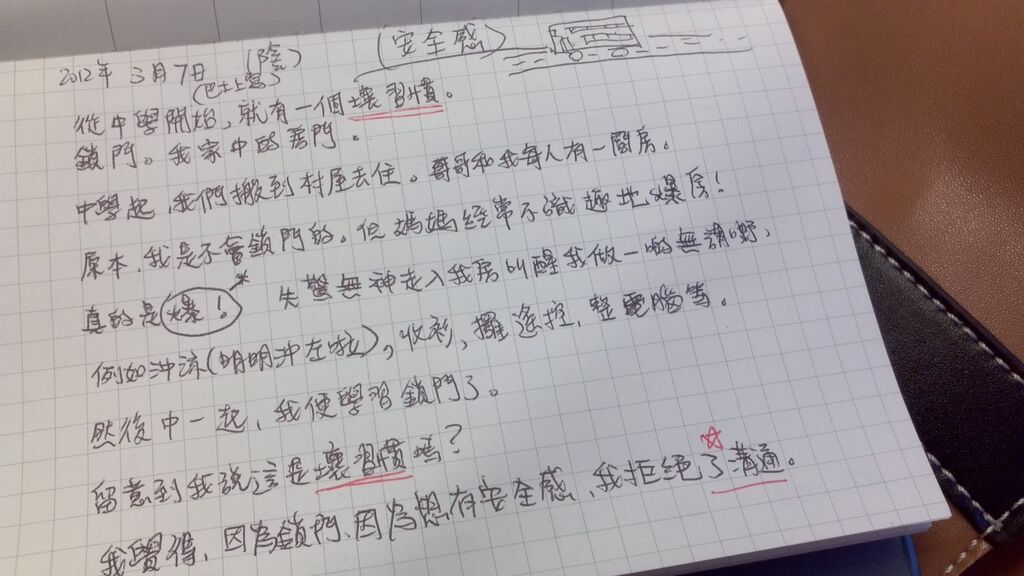 2012年 3月7日 (陰) (安全感)
(巴士上寫)
從中學開始,就有一個壞習慣。
鎖門。我家中的房門。
中學起,我們搬到村屋去住。哥哥和我每人有一間房。
原本,我是不會鎖門的。但媽媽經常不識趣地爆房!
真的是爆!* 失驚無神走入我房叫醒我做一啲無謂嘢,
例如沖涼(明明沖左啦),收衫,攞遙控,整電腦等。
然後中一起,我便學習鎖門了。
留意到我說這是壞習慣嗎?
我覺得,因為鎖門,因為想有安全感,我拒絕了溝通。